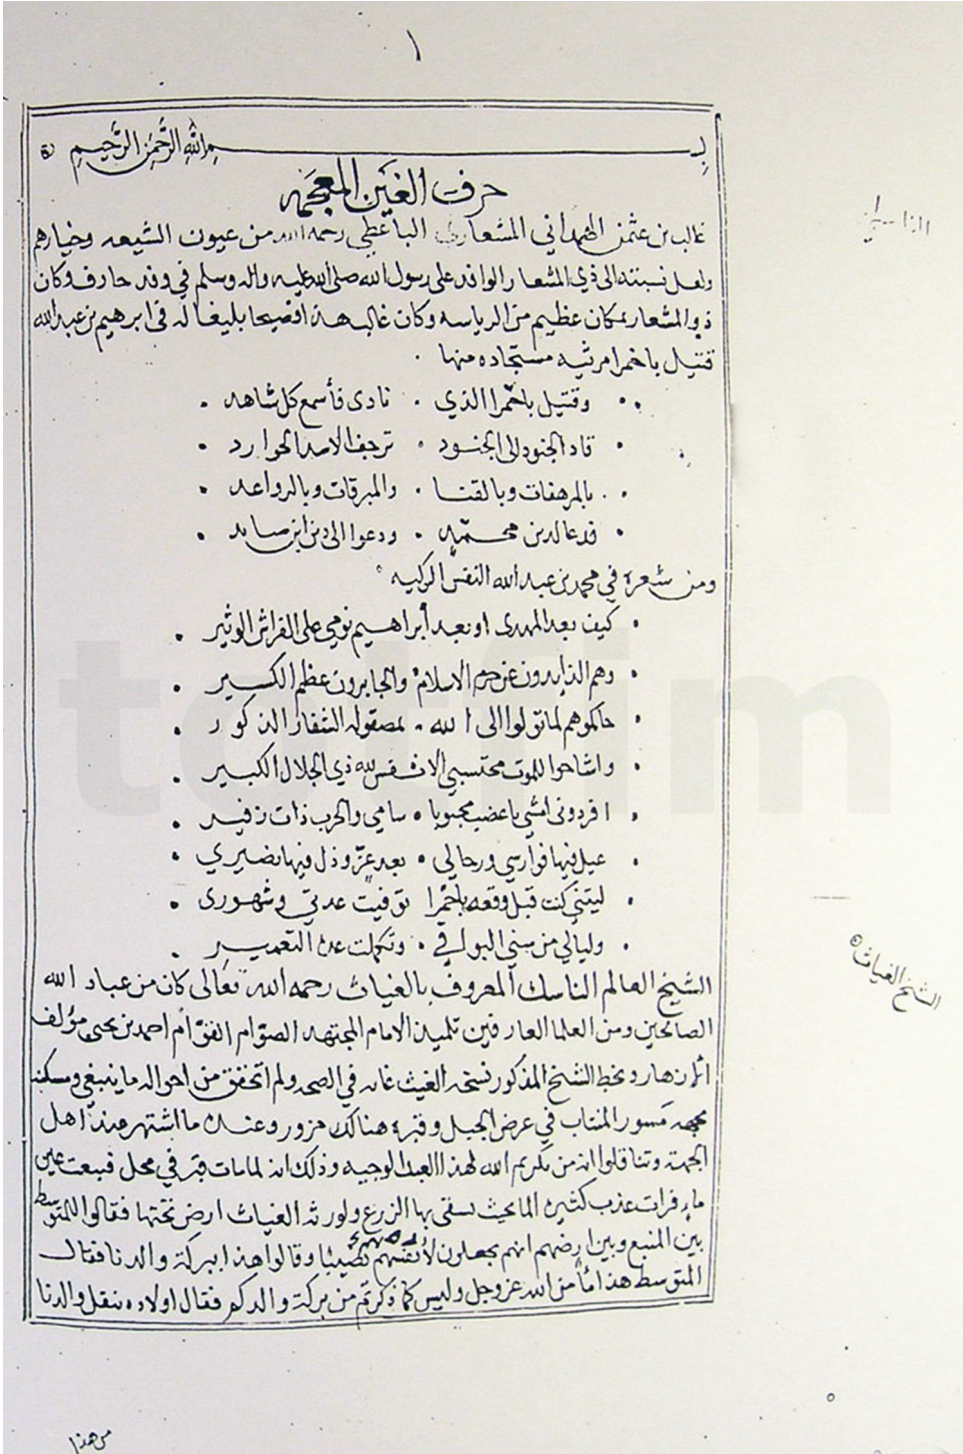 ١
بسم الله الرحمن الرحيم
حرف الغين المعجمه
غالب بن عثمن الهمداني المشعاري الباعطي رحمه الله من عيون الشيعه وخيارهم
ولعل نسبته الى ذي المشعار الوافد على رسول الله صلى الله عليه واله وسلم في وفد خارف وكان
ذو المشعار بمكان عظيم من الرياسه وكان غالب هذا فصيحا بليغا له في ابرهيم بن عبد الله
قتيل باخمرا مرثيه مستجاده منها
وقتيل باخمرا الذي . نادى فأسمع كل شاهد
قاد الجنود الى الجنود . تزحف الاسد الحوارد
بالمرهفات وبالقنا . والمبرقات وبالرواعد
فدعا لدين محمد . ودعوا الى دين ابن صايد
ومن شعره في محمد بن عبد الله النفس الزكيه
كيف بعد المهدي او بعد أبراهيم نومي على الفراش الوثير
وهم الذايدون عن حرم الاسلام والجابرون عظم الكسير
حاكموهم لما تولوا الى الله . بمصقوله الشفار الذكور
واشاحوا للموت محتسبي الانفس لله ذي الجلال الكبير
افردوني امشي باعضب مجبوبا سنامي والحرب ذات زفير
عيل فيها فوارسي ورجالي . بعد عز وذل فيها نصيري
ليتني كنت قبل وقعه باخمرا توفيت عدتي وشهوري
وليالي من سني البواقي . وتكملت عدة التعمير
الشيخ العالم الناسك المعروف بالغياث رحمه الله تعالى كان من عباد الله
الصالحين ومن العلما العارفين تلميذ الامام المجتهد الصوام القوام احمد بن يحيى مؤلف
الازهار وبخط الشيخ المذكور نسخه الغيث غايه في الصحه ولم اتحقق من احواله ما ينبغي ومسكنه
بجهه مسور المنتاب في عرض الجبل وقبره هنالك مزور وعندك ما اشتهر عند اهل
الجهة وتناقلوا انه من تكريم الله لهذا العبد الوجيه وذلك انه لما مات قبر في محل فنبعت عين
ماء فرات عذب كثيره الما بحيث تسقى بها الزرع ولورثه الغياث ارض تحتها فقالوا للمتوسط
بين المنبع وبين ارضهم انهم يجعلون لأنفسهم نصيبا وقالوا هذا ببركة والدنا فقال
المتوسط هذا ماء من الله عز وجل وليس كما ذكرتم من بركة والدكم فقال اولاده ننقل والدنا
الشيخ الغياث
من هذا